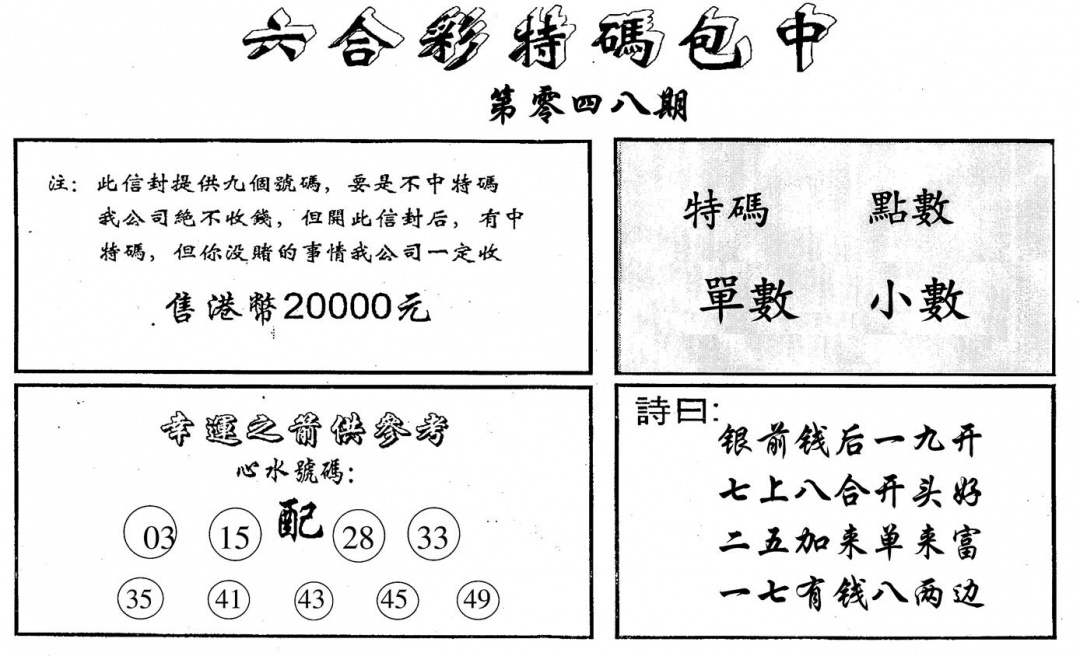 六合彩特碼包中
第零四八期
注：此信封提供九個號碼，要是不中特碼
我公司絕不收錢，但開此信封后，有中
特碼，但你没賭的事情我公司一定收
售港幣20000元
特碼 點數
單數 小數
幸運之箭供參考
心水號碼：
03 15 配 28 33
35 41 43 45 49
詩曰：
银前钱后一九开
七上八合开头好
二五加来单来富
一七有钱八两边